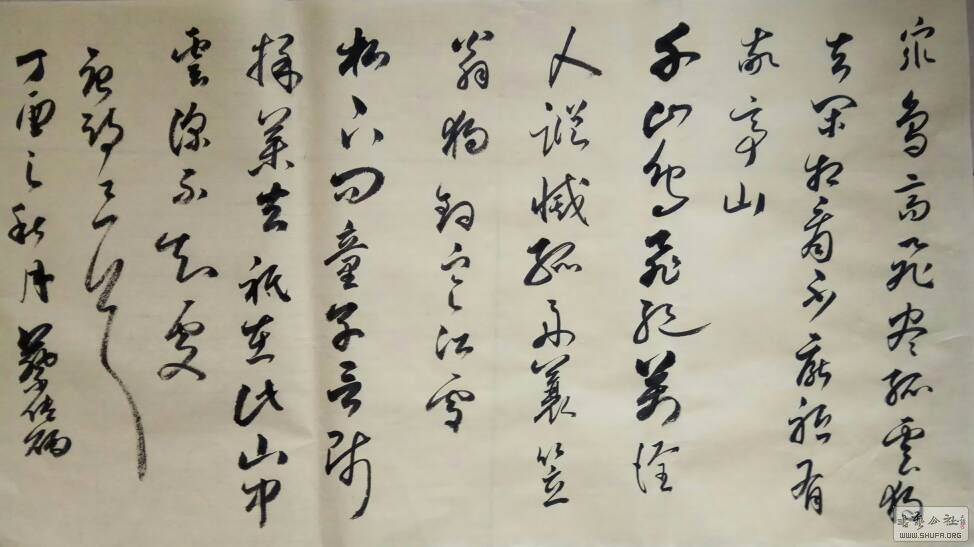 眾鳥高飛尽孤雲獨
去閑相看不厭祇有
敬亭山
千山鳥飛絕萬徑
人蹤滅孤舟蓑笠
翁獨釣寒江雪
松下問童子言師
採藥去祇在此山中
雲深不知處
詩三首
丁酉之秋月 蔡
書法公社
WWW.SHUFA.ORG